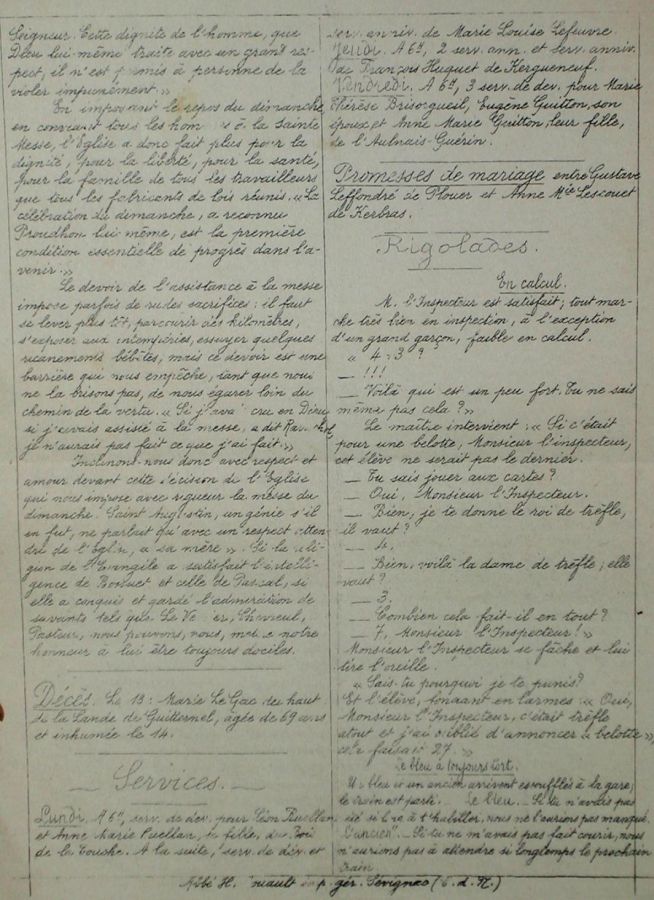 Seigneur. Cette dignité de l'homme, que
Dieu lui-même traite avec un grand res-
pect, il n'est permis à personne de la
violer impunément »
En imposant le repos du dimanche,
en conviant tous les hom s à la Sainte
Messe, l'Eglise a donc fait plus pour la
dignité, pour la liberté, pour la santé,
pour la famille de tous les travailleurs
que tous les fabricants de lois réunis. « La
célébration du dimanche, a reconnu
Proudhon lui-même, est la première
condition essentielle de progrès dans l'a-
venir. »
Le devoir de l'assistance à la messe
impose parfois de rudes sacrifices : il faut
se lever plus tôt, parcourir des kilomètres,
s'exposer aux intempéries, essuyer quelques
ricanements bébêtes, mais ce devoir est une
barrière qui nous empêche, tant que nous
ne la brisons pas, de nous égarer loin du
chemin de la vertu. « Si j'ava cru en Dieu,
si j'avais assisté à la messe, a dit Rav
je n'aurais pas fait ce que j'ai fait. »
Inclinons-nous donc avec respect et
amour devant cette décision de l'Eglise
qui nous impose avec rigueur la messe du
dimanche. Saint Augustin, un génie s'il
en fut, ne parlait qu'avec un respect atten-
dri de l'Eglise, « sa mère ». Si la reli-
gion de l'Evangile a satisfait l'intelli-
gence de Bossuet et celle de Pascal, si
elle a conquis et gardé l'admiration de
savants tels que Le Ve er, Chevreul,
Pasteur, nous pouvons, nous, mettre notre
honneur à lui être toujours dociles.
Décès. Le 13 : Marie Le Gac du haut
de la Lande de Guitternel, âgée de 69 ans
et inhumée le 14.
Services.
Lundi. A 6h, serv. de dév. pour Léon Ruellan
et Anne Marie Ruellan, sa fille, du Bois
de la Touche. A la suite, serv. de dév. et
serv. anniv. de Marie Louise Lefeuvre.
Jeudi. A 6h, 2 serv. ann. et serv. anniv.
de François Huguet de Kergueneuf.
Vendredi. A 6h, 3 serv. de dev. pour Marie
Thérèse Brisorgueil, Eugène Guitton, son
époux et Anne Marie Guitton, leur fille,
de l'Aulnais-Guérin.
Promesses de mariage entre Gustave
Leffondré de Plouer et Anne Mie Lescouet
de Kerbras.
Rigolades.
En calcul.
M. l'Inspecteur est satisfait ; tout mar-
che très bien en inspection, à l'exception
d'un grand garçon, faible en calcul.
« 4 + 3 ?
— !!!
— Voilà qui est un peu fort. Tu ne sais
même pas cela ? »
Le maître intervient : « Si c'était
pour une belotte, Monsieur l'inspecteur,
cet élève ne serait pas le dernier.
— Tu sais jouer aux cartes ?
— Oui, Monsieur l'Inspecteur.
— Bien, je te donne le roi de trèfle,
il vaut ?
— 4.
— Bien, voilà la dame de trèfle ; elle
vaut ?
— 3.
— Combien cela fait-il en tout ?
— 7, Monsieur l'Inspecteur ! »
Monsieur l'Inspecteur se fâche et lui
tire l'oreille.
« Sais-tu pourquoi je te punis ?
Et l'élève, fondant en larmes : « Oui,
Monsieur l'Inspecteur, c'était trèfle
atout et j'ai oublié d'annoncer « belotte »,
cela faisait 27. »
Le bleu a toujours tort.
Un bleu et un ancien arrivent essoufflés à la gare ;
le train est parti. Le bleu. — Si tu n'avais pas
été si long à t'habiller, nous ne l'aurions pas manqué.
L'ancien. — Si tu ne m'avais pas fait courir, nous
n'aurions pas à attendre si longtemps le prochain
train.
Abbé H. imp. gér. Sévignac (C. d. N.)